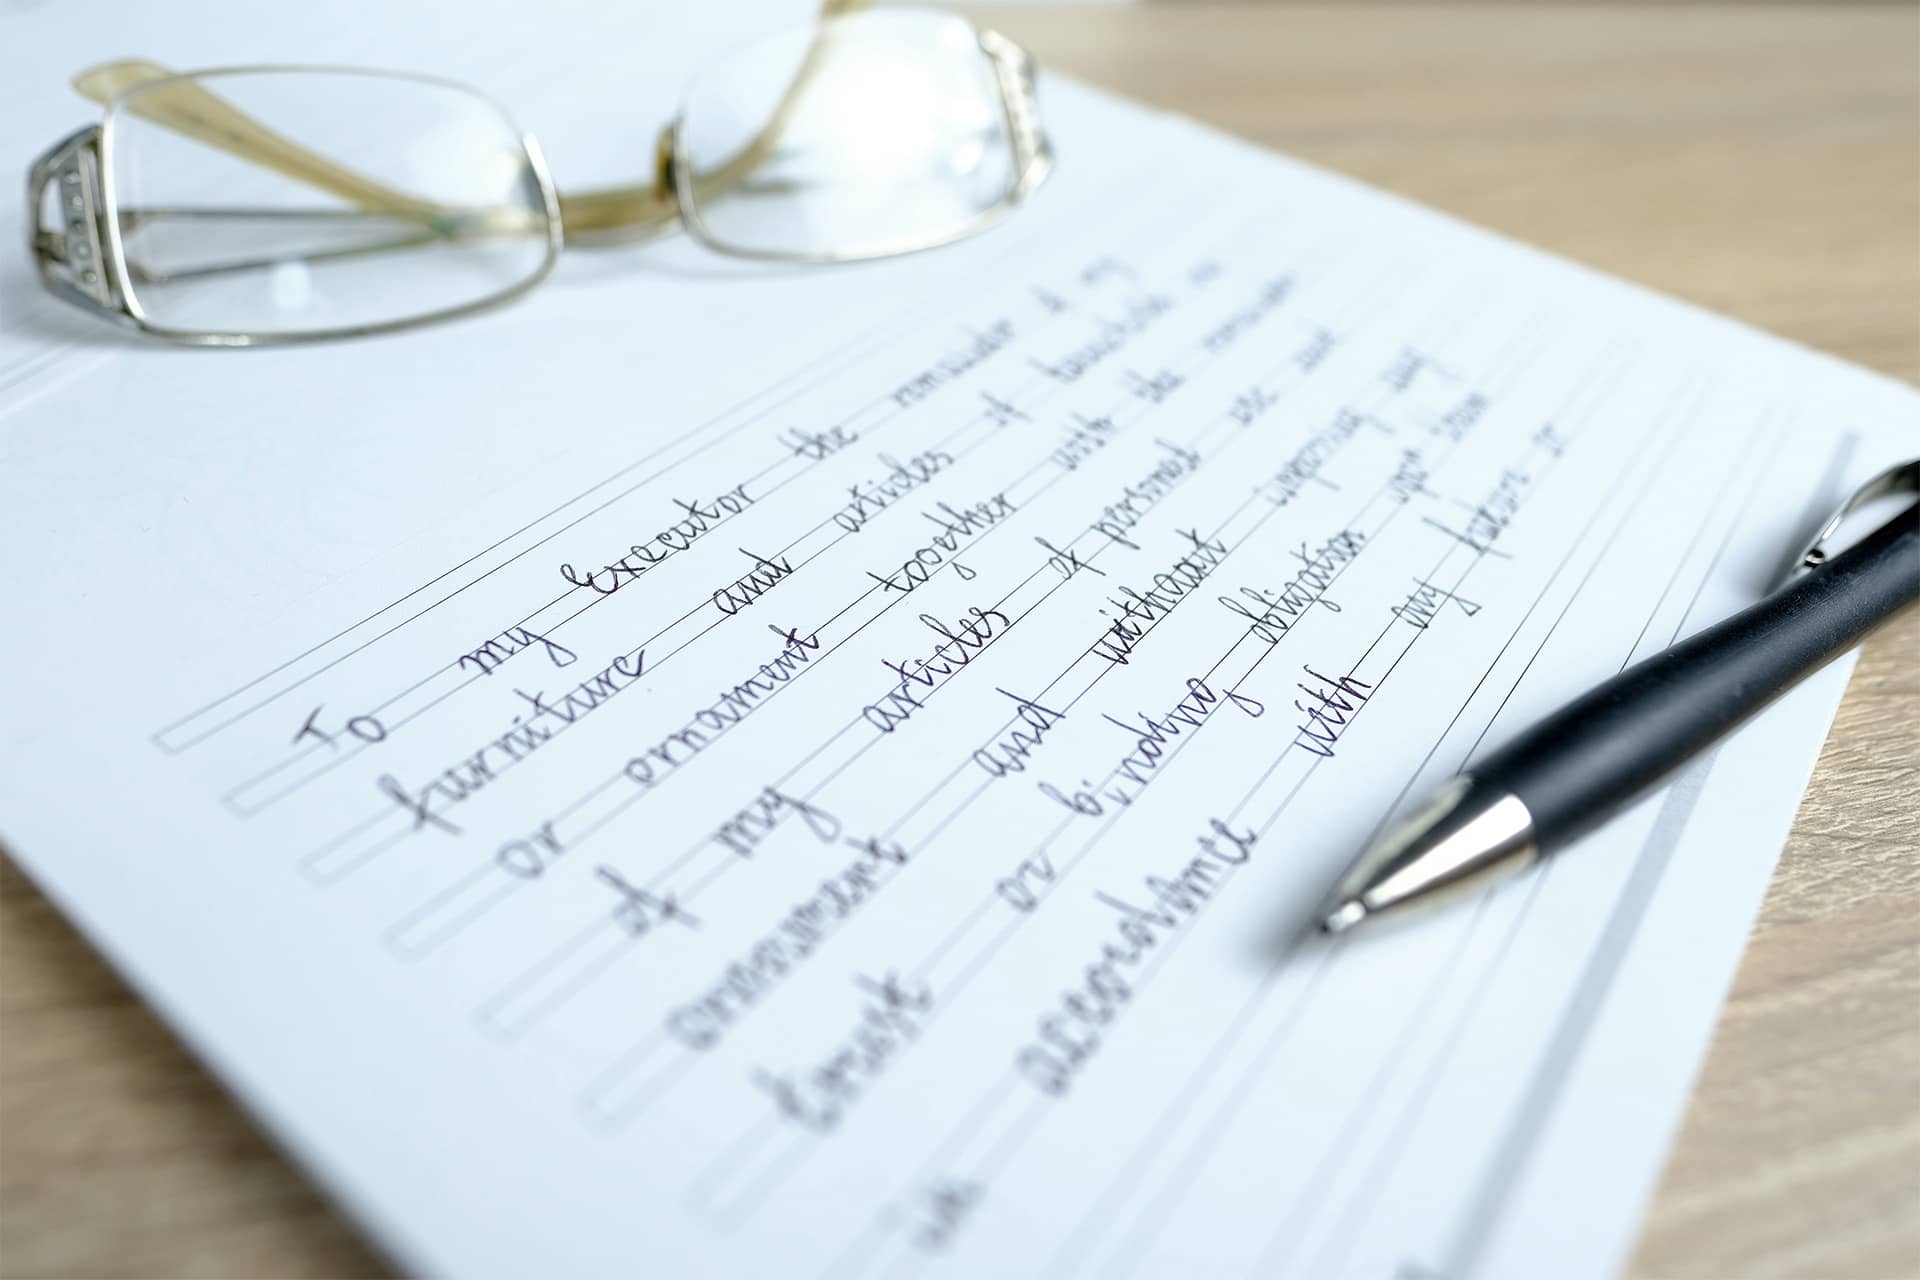 To my executor the remainder of my
furniture and articles of household
or ornament together with the remainder
of my articles of personal use and
ornament and without imposing any
trust or binding obligation upon
in accordance with any future or